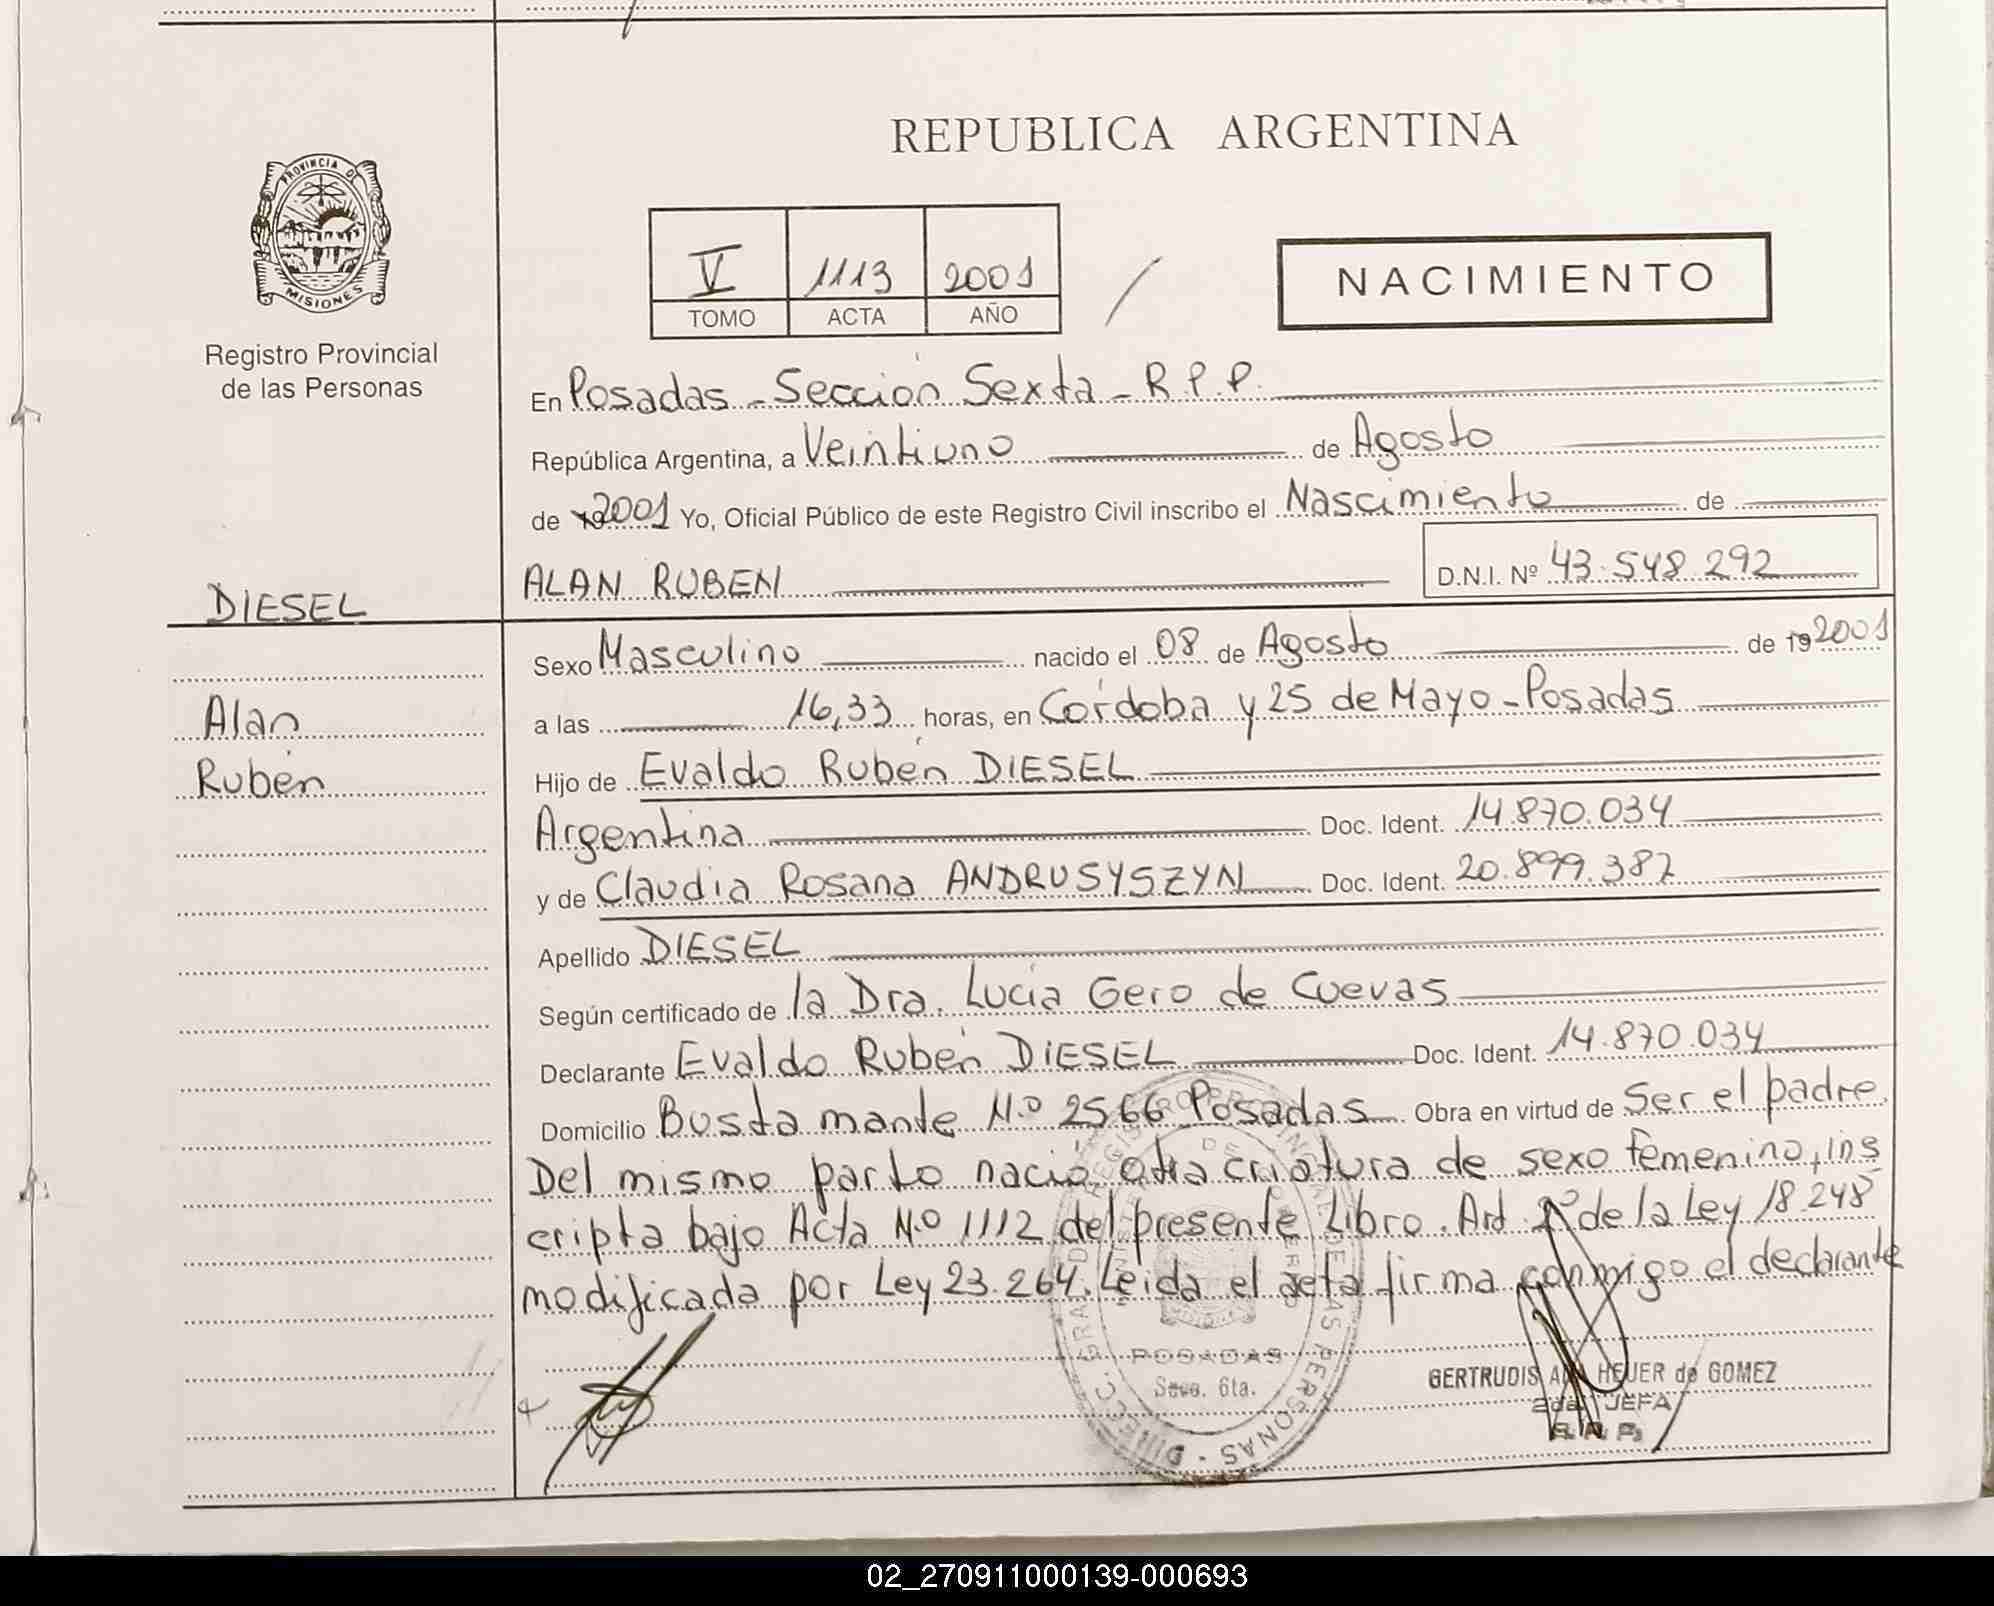 REPUBLICA ARGENTINA
PROVINCIA DE
MISIONES
Registro Provincial
de las Personas
V 1113 2001
TOMO ACTA AÑO
NACIMIENTO
En Posadas - Sección Sexta - R.P.P.
República Argentina, a Veintiuno de Agosto
de 192001 Yo, Oficial Público de este Registro Civil inscribo el Nascimiento de
ALAN RUBEN D.N.I. Nº 43.548.292
DIESEL
Alan
Rubén
Sexo Masculino nacido el 08 de Agosto de 192001
a las 16,33 horas, en Córdoba y 25 de Mayo - Posadas
Hijo de Evaldo Rubén DIESEL
Argentina Doc. Ident. 14.870.034
y de Claudia Rosana ANDRUSYSZYN Doc. Ident. 20.899.387
Apellido DIESEL
Según certificado de la Dra. Lucía Gero de Cuevas
Declarante Evaldo Rubén DIESEL Doc. Ident. 14.870.034
Domicilio Bustamante N.º 2566 Posadas Obra en virtud de Ser el padre.
Del mismo parto nació otra criatura de sexo femenino, ins
cripta bajo Acta N.º 1112 del presente Libro. Art. 2º de la Ley 18.248
modificada por Ley 23.264. Leida el acta firma conmigo el declarante
POSADAS
Secc. 6ta.
GERTRUDIS ANA HEUER de GOMEZ
2da. JEFA
R. P. P.
02_270911000139-000693